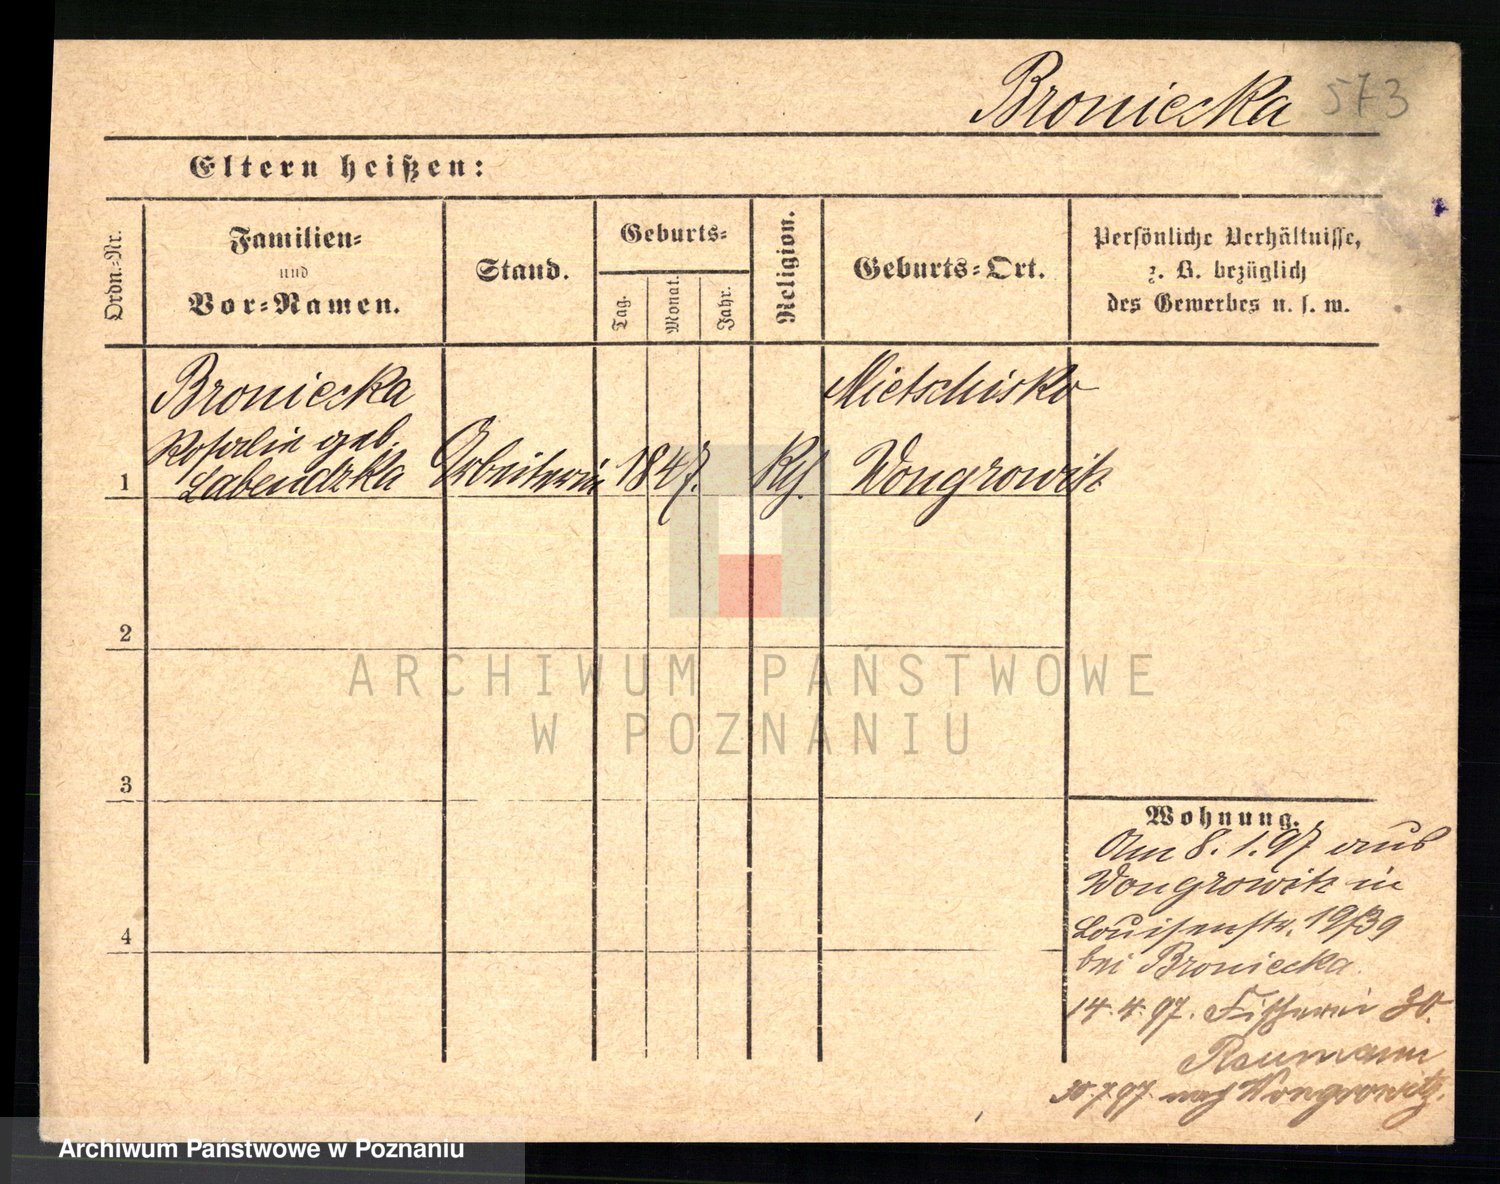 Broniecka 573
Eltern heißen:
Ordn.=Nr.
Familien=
und
Vor=Namen.
Stand.
Geburts=
Tag.
Monat.
Jahr.
Religion.
Geburts=Ort.
Persönliche Verhältnisse,
z. B. bezüglich
des Gewerbes u. s. w.
1
Broniecka
Rosalie geb.
Labendzka
Arbeiterin
1847.
Kth.
Mietschisko
Wongrowitz
2
3
4
Wohnung.
Am 8. 1. 97 aus
Wongrowitz in
Louisenstr. 19/39
bei Broniecka.
14. 4. 97. Fischerei 30.
Raumann
30.7.97. nach Wongrowitz.
ARCHIWUM PAŃSTWOWE
W POZNANIU
Archiwum Państwowe w Poznaniu